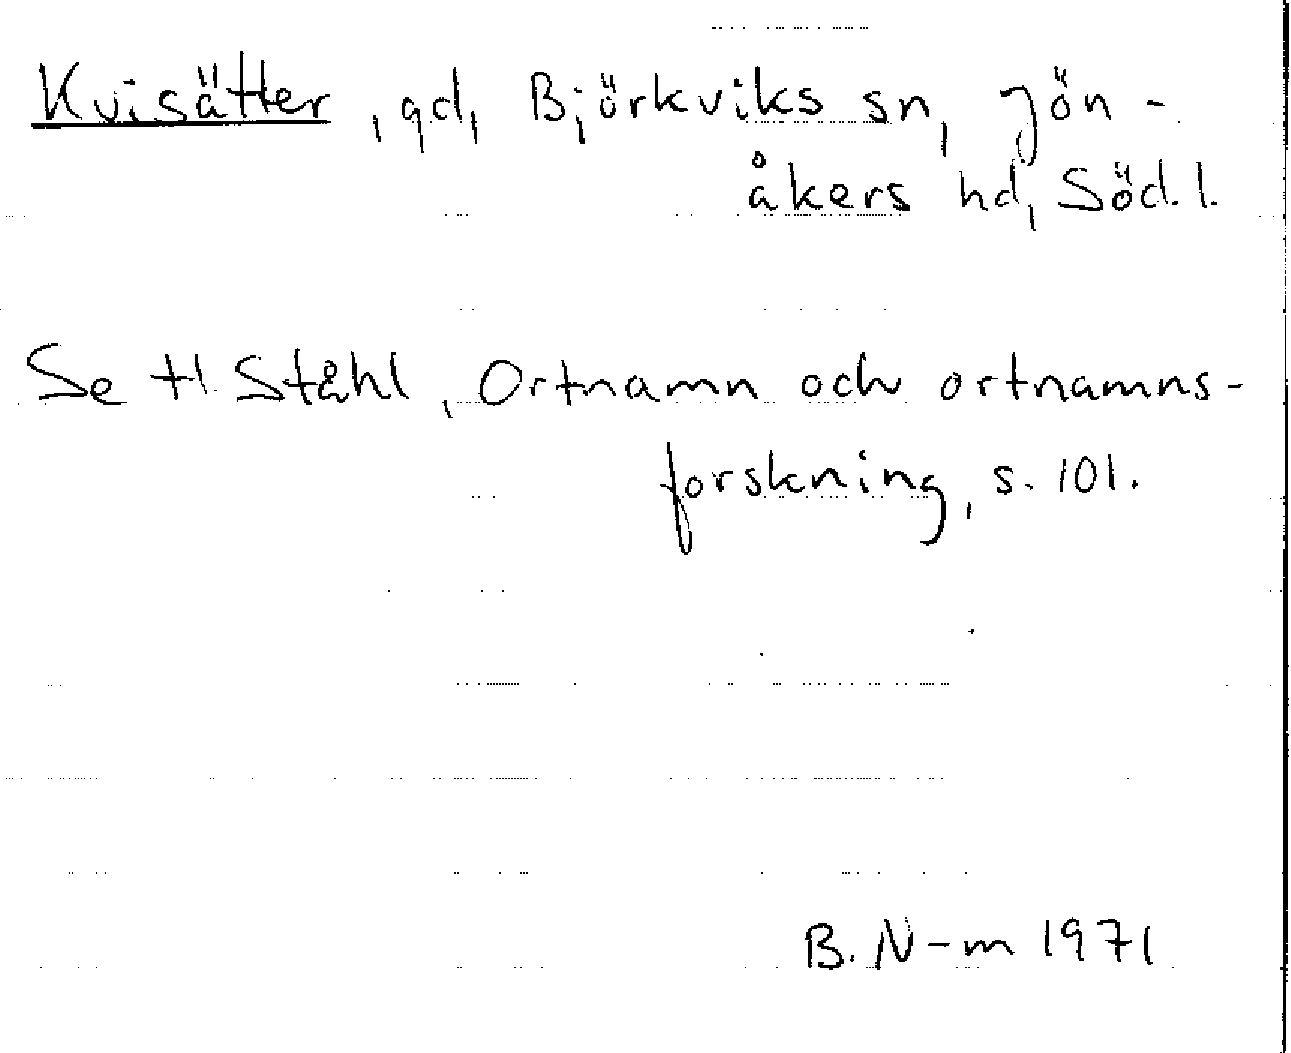 Kvisätter, gd, Björkviks sn, Jön-
åkers hd, Söd.l.
Se H. Ståhl, Ortnamn och ortnamns-
forskning, s. 101.
B. N-m 1971